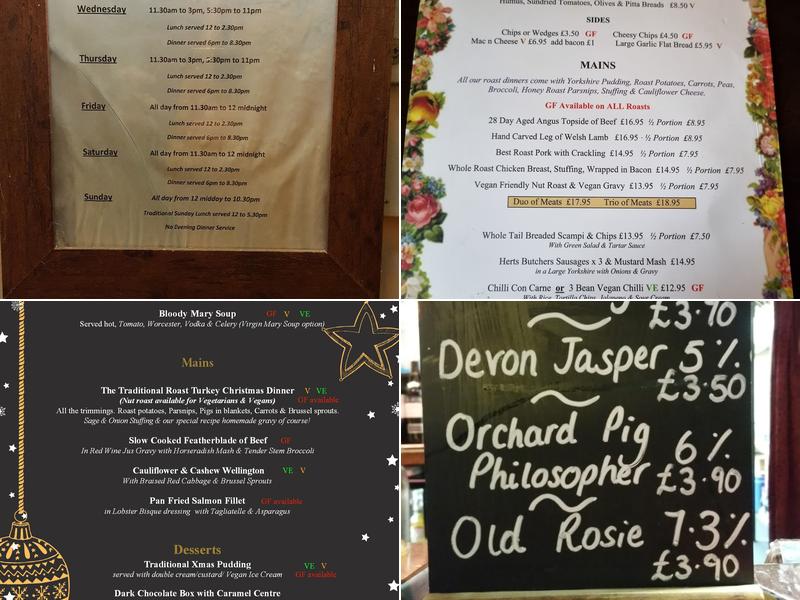 Wednesday 11.30am to 3pm, 5:30pm to 11pm
Lunch served 12 to 2.30pm
Dinner served 6pm to 8.30pm
Thursday 11.30am to 3pm, 5:30pm to 11pm
Lunch served 12 to 2.30pm
Dinner served 6pm to 8.30pm
Friday All day from 11.30am to 12 midnight
Lunch served 12 to 2.30pm
Dinner served 6pm to 8.30pm
Saturday All day from 11.30am to 12 midnight
Lunch served 12 to 2.30pm
Dinner served 6pm to 8.30pm
Sunday All day from 12 midday to 10.30pm
Traditional Sunday Lunch served 12 to 5.30pm
No Evening Dinner Service
Humus, Sundried Tomatoes, Olives & Pitta Breads £8.50 V
SIDES
Chips or Wedges £3.50 GF Cheesy Chips £4.50 GF
Mac n Cheese V £6.95 add bacon £1 Large Garlic Flat Bread £5.95 V
MAINS
All our roast dinners come with Yorkshire Pudding, Roast Potatoes, Carrots, Peas,
Broccoli, Honey Roast Parsnips, Stuffing & Cauliflower Cheese.
GF Available on ALL Roasts
28 Day Aged Angus Topside of Beef £16.95 ½ Portion £8.95
Hand Carved Leg of Welsh Lamb £16.95 · ½ Portion £8.95
Best Roast Pork with Crackling £14.95 ½ Portion £7.95
Whole Roast Chicken Breast, Stuffing, Wrapped in Bacon £14.95 ½ Portion £7.95
Vegan Friendly Nut Roast & Vegan Gravy £13.95 ½ Portion £7.95
Duo of Meats £17.95 Trio of Meats £18.95
Whole Tail Breaded Scampi & Chips £13.95 ½ Portion £7.50
With Green Salad & Tartar Sauce
Herts Butchers Sausages x 3 & Mustard Mash £14.95
in a Large Yorkshire with Onions & Gravy
Chilli Con Carne or 3 Bean Vegan Chilli VE £12.95 GF
With Rice, Tortilla Chips, Jalapeno & Sour Cream
Bloody Mary Soup GF V VE
Served hot, Tomato, Worcester, Vodka & Celery (Virgin Mary Soup option)
Mains
The Traditional Roast Turkey Christmas Dinner V VE
(Nut roast available for Vegetarians & Vegans) GF available
All the trimmings. Roast potatoes, Parsnips, Pigs in blankets, Carrots & Brussel sprouts.
Sage & Onion Stuffing & our special recipe homemade gravy of course!
Slow Cooked Featherblade of Beef GF
In Red Wine Jus Gravy with Horseradish Mash & Tender Stem Broccoli
Cauliflower & Cashew Wellington VE V
With Braised Red Cabbage & Brussel Sprouts
Pan Fried Salmon Fillet GF available
in Lobster Bisque dressing with Tagliatelle & Asparagus
Desserts
Traditional Xmas Pudding V VE
served with double cream/custard/ Vegan Ice Cream GF available
Dark Chocolate Box with Caramel Centre
£3.70
Devon Jasper 5%
£3.50
Orchard Pig 6%
Philosopher £3.90
Old Rosie 7.3%
£3.90